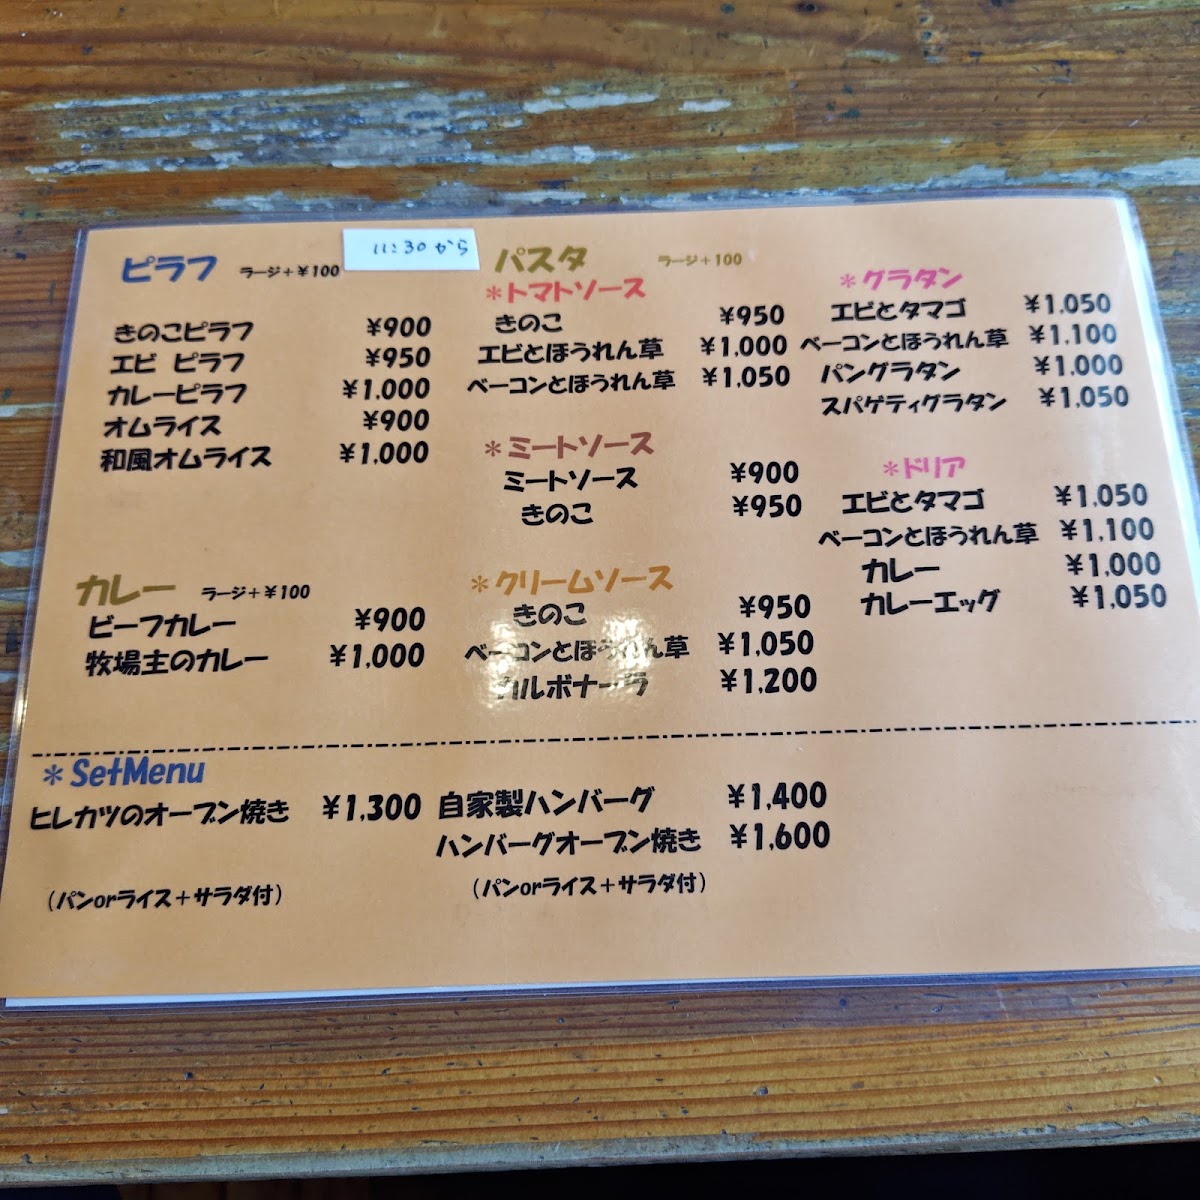 11:30から
ピラフ ラージ+¥100
きのこピラフ ¥900
エビ ピラフ ¥950
カレーピラフ ¥1,000
オムライス ¥900
和風オムライス ¥1,000
カレー ラージ+¥100
ビーフカレー ¥900
牧場主のカレー ¥1,000
パスタ ラージ+100
*トマトソース
きのこ ¥950
エビとほうれん草 ¥1,000
ベーコンとほうれん草 ¥1,050
*ミートソース
ミートソース ¥900
きのこ ¥950
*クリームソース
きのこ ¥950
ベーコンとほうれん草 ¥1,050
カルボナーラ ¥1,200
*グラタン
エビとタマゴ ¥1,050
ベーコンとほうれん草 ¥1,100
パングラタン ¥1,000
スパゲティグラタン ¥1,050
*ドリア
エビとタマゴ ¥1,050
ベーコンとほうれん草 ¥1,100
カレー ¥1,000
カレーエッグ ¥1,050
*SetMenu
ヒレカツのオーブン焼き ¥1,300
(パンorライス+サラダ付)
自家製ハンバーグ ¥1,400
ハンバーグオーブン焼き ¥1,600
(パンorライス+サラダ付)